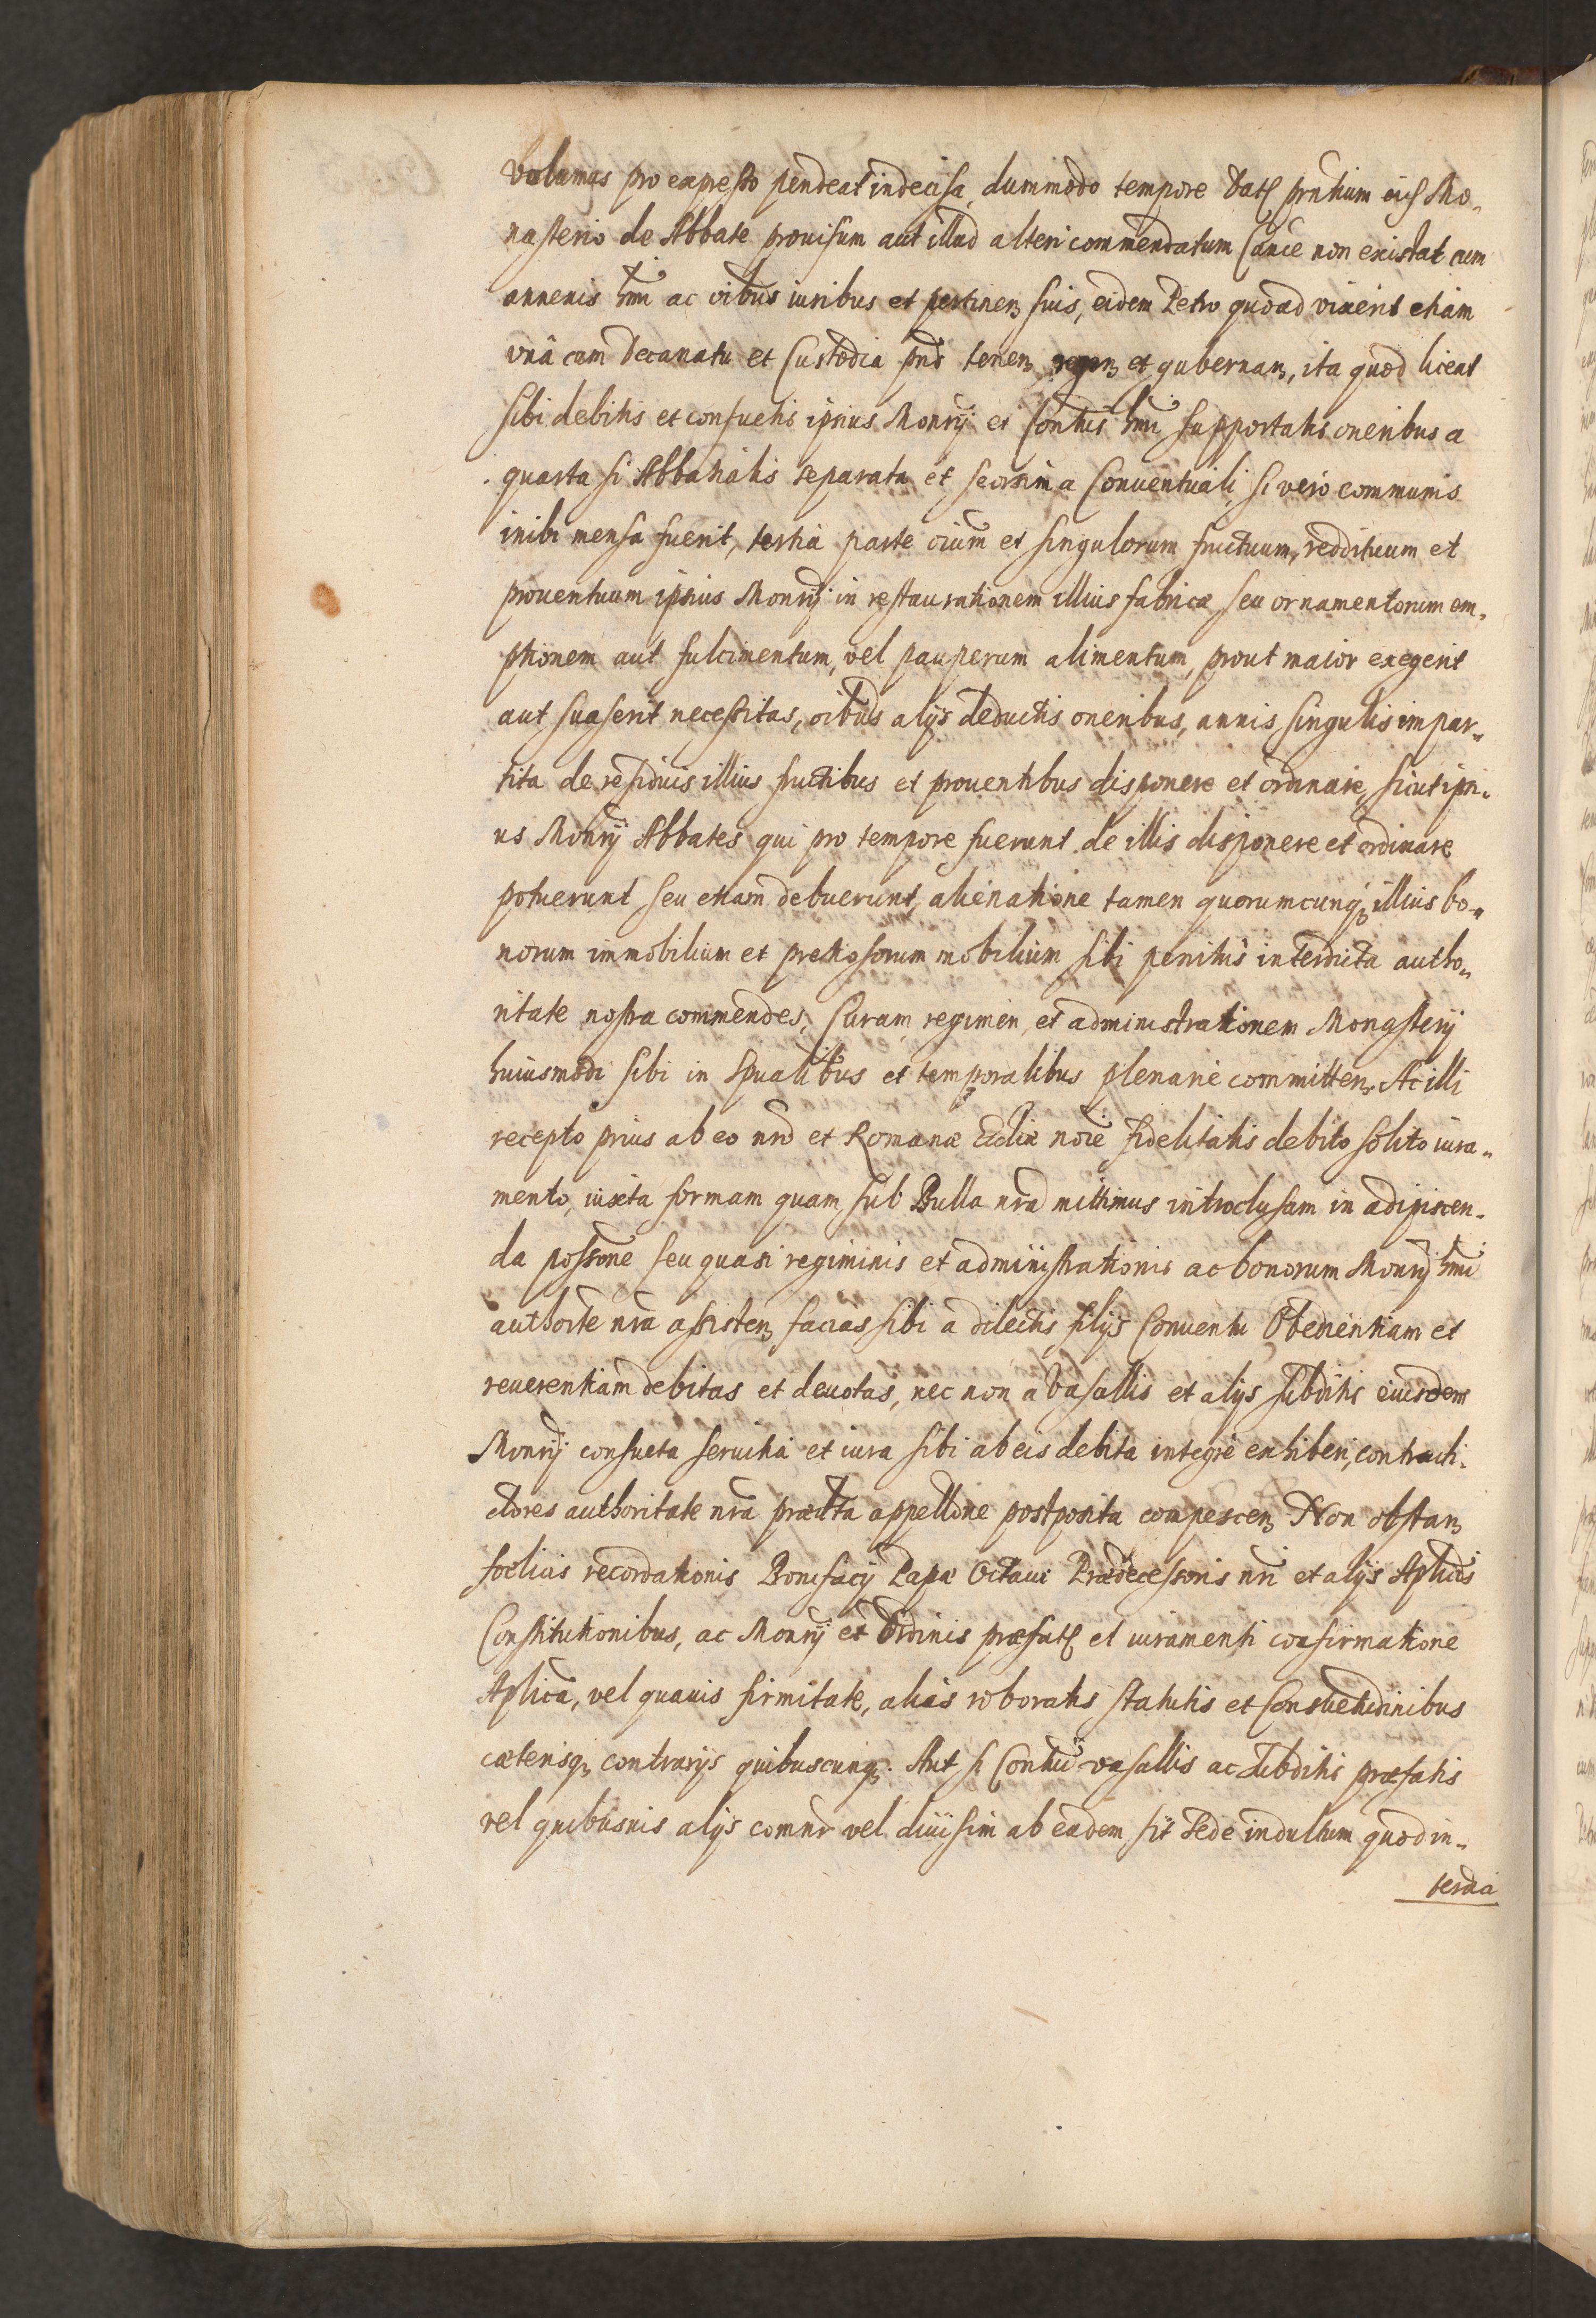 volumus pro expresso pendeat indecisa, dummodo tempore dat. pntium eid. Mo-
nasterio de Abbate provisum aut illud alteri commendatum Cance non existat cum
annexis hmi ac oibus iuribus et pertinen. suis, eidem Petro quoad vixerit etiam
unâ cum decanatu et Custodia pnd. tenen. regen. et gubernan., ita quod liceat
sibi debitis et consuetis ipsius Monrij et Contus hmi supportatis oneribus a
quarta si Abbatialis separata et seorsim a Conventuali, si vero communis
inibi mensa fuerit, tertia parte oium et singulorum fructuum, reddituum et
proventuum ipsius Monrij in restaurationem illius fabricæ, seu ornamentorum em-
ptionem aut fulcimentum, vel pauperum alimentum, prout maior exegerit
aut suaserit necessitas, oibus alijs deductis oneribus, annis singulis impar-
tita de residuis illius fructibus et proventibus disponere et ordinare, sicut ipsi-
us Monrij Abbates qui pro tempore fuerunt de illis disponere et ordinare
potuerunt seu etiam debuerunt, alienatione tamen quorumcunq. illius bo-
norum immobilium et pretiosorum mobilium sibi penitus interdicta autho-
ritate nostra commendes, Curam, regimen, et administrationem Monasterij
huiusmodi sibi in spualibus et temporalibus plenarie committen. Ac illi
recepto prius ab eo nro et Romanæ Ecclie noie fidelitatis debito solito iura-
mento, iuxta formam quam sub Bulla nra mittimus introclusam in adipiscen-
da possone seu quasi regiminis et administrationis ac bonorum Monrij hmi
authorite nra assisten. facias sibi a dilectis filijs Conventu Obedientiam et
reverentiam debitas et devotas, nec non a Vasallis et alijs subditis eiusdem
Monrij consueta servitia et iura sibi ab eis debita integrè exhiberi, contradi-
ctores authoritate nra prædta appellone postposita compescen. Non obstan.
foelicis recordationis Bonifacij Papæ Octavi Prædecessoris nri et alijs Aplicis
Constitutionibus, ac Monrij et Ordinis præfat. et iuramenti confirmatione
Aplica, vel quavis firmitate, alias roboratis statutis et Consuetudinibus
cæterisq. contrarijs quibuscunq. Aut si Contui vasallis ac subditis præfatis
vel quibusvis alijs comnr vel divisim ab eadem sit Sede indultum quod in-
terdici